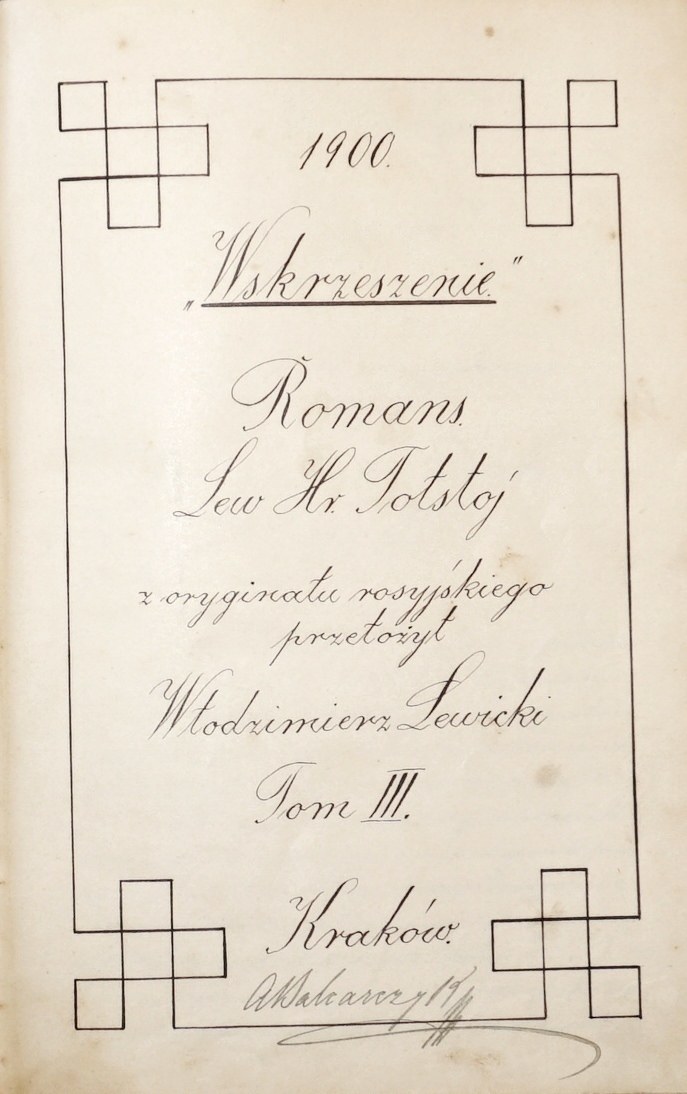 1900.
„Wskrzeszenie.”
Romans.
Lew Hr. Tołstoj
z oryginału rosyjskiego
przełożył
Włodzimierz Lewicki
Tom III.
Kraków.